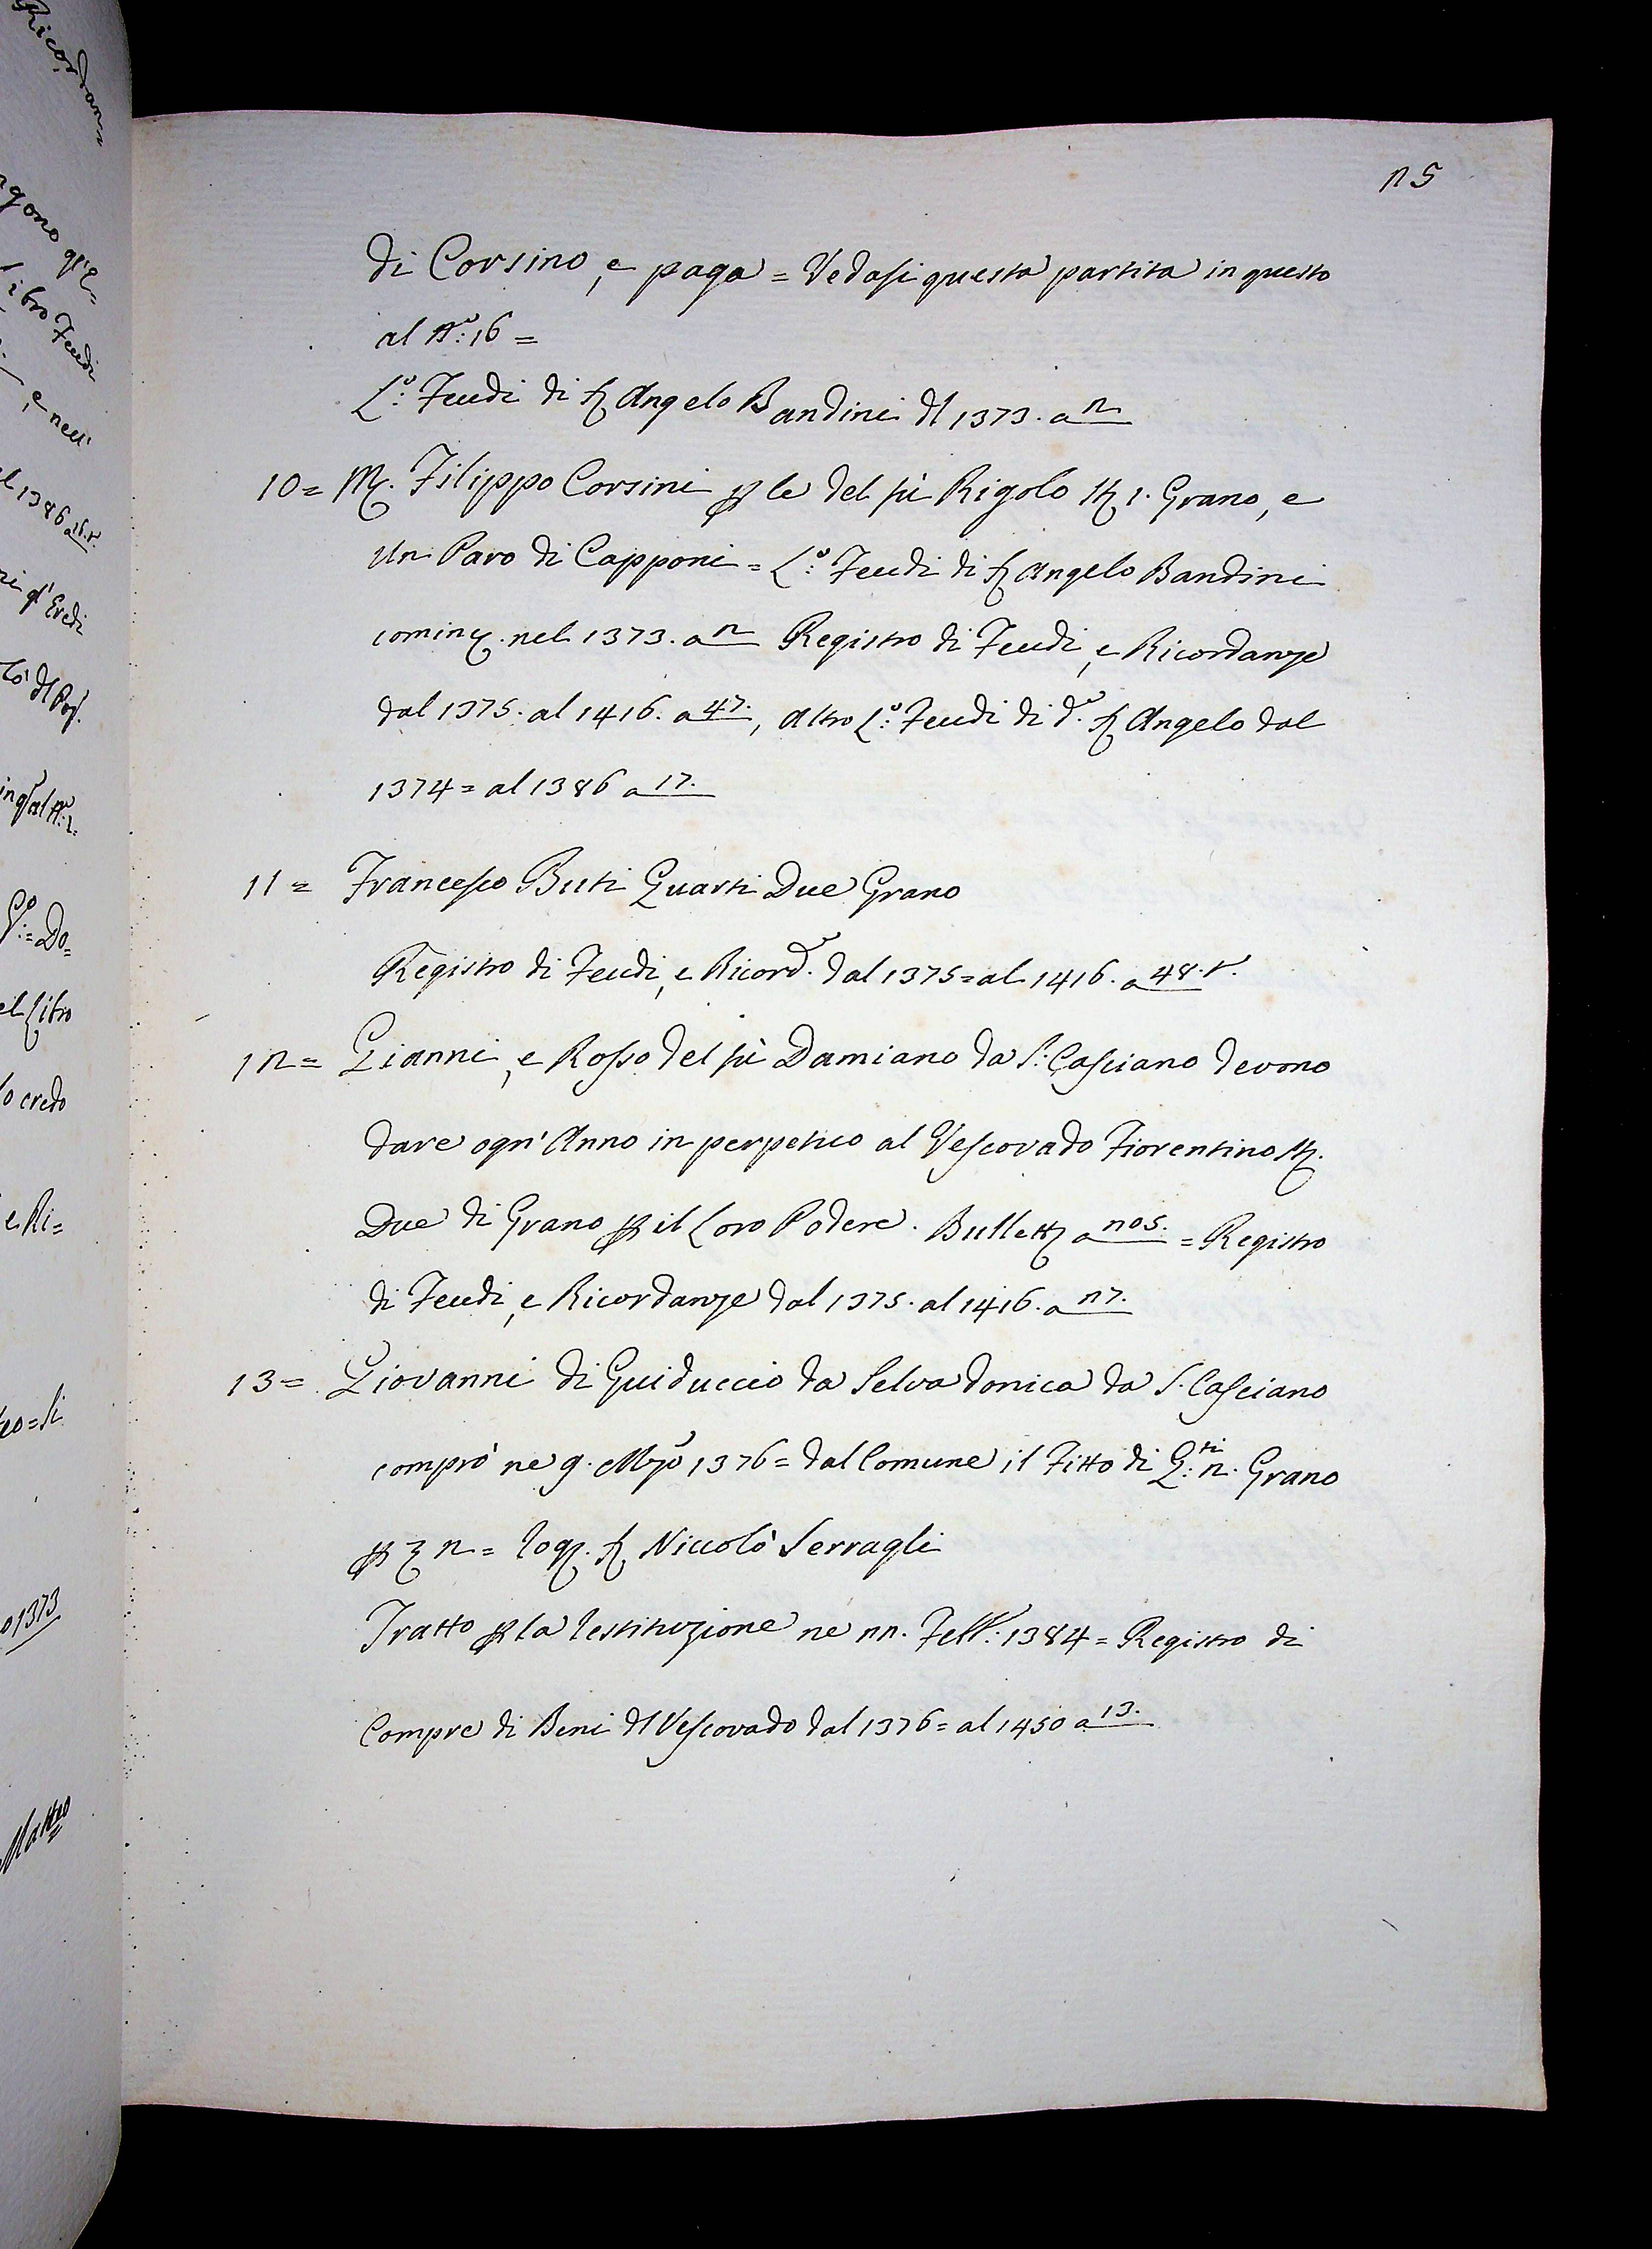 25
di Corsino, e paga = Vedasi questa partita in questo
al N.º: 16 =
L.º: Feudi di f. Angelo Bandini dl 1373. a 2
10 = M. Filippo Corsini p le del fù Rigolo St. 1. Grano, e
Un Paro di Capponi = L.º: Feudi di f. Angelo Bandini
cominc. nel 1373. a 2 Registro di Feudi, e Ricordanze
dal 1375. al 1416. a 47., altro L.º: Feudi di d.º f. Angelo dal
1374 = al 1386 a 17.
11 = Francesco Buti Quarti Due Grano
Registro di Feudi, e Ricord. dal 1375 = al 1416. a 48. t.
12 = Gianni, e Rosso del fù Damiano da S: Casciano devono
dare ogn' Anno in perpetuo al Vescovado Fiorentino St.
Due di Grano p il Loro Podere. Bullett a 205. = Registro
di Feudi, e Ricordanze dal 1375. al 1416. a 27.
13 = Giovanni di Guiduccio da Selvadonica da S. Casciano
comprò ne 9. Mzo 1376 = dal Comune il Fitto di Q:ti 2. Grano
p 2 = Rog. f. Niccolò Serragli
Tratto p la Restituzione ne 22. Febb.: 1384 = Registro di
Compre di Beni dl Vescovado dal 1376 = al 1450 a 13.